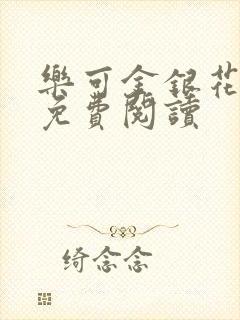 樂可金銀花
免費閱讀
绮念念